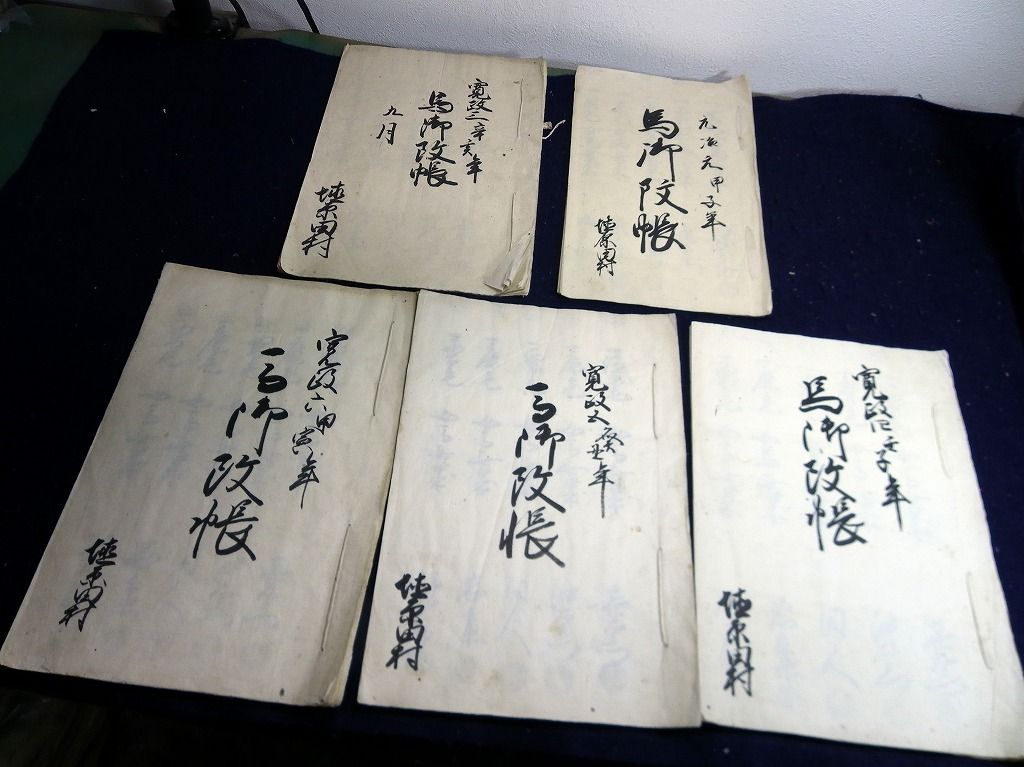 寛政三辛亥年
馬御改帳
九月
埴原田村
元治元甲子年
馬御改帳
埴原田村
寛政六甲寅年
馬御改帳
埴原田村
寛政五癸丑年
馬御改帳
埴原田村
寛政四壬子年
馬御改帳
埴原田村